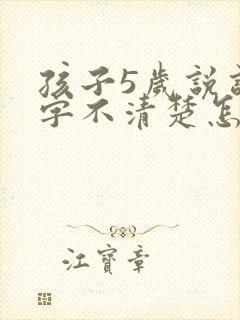 孩子5歲說
字不清楚怎
江寶章